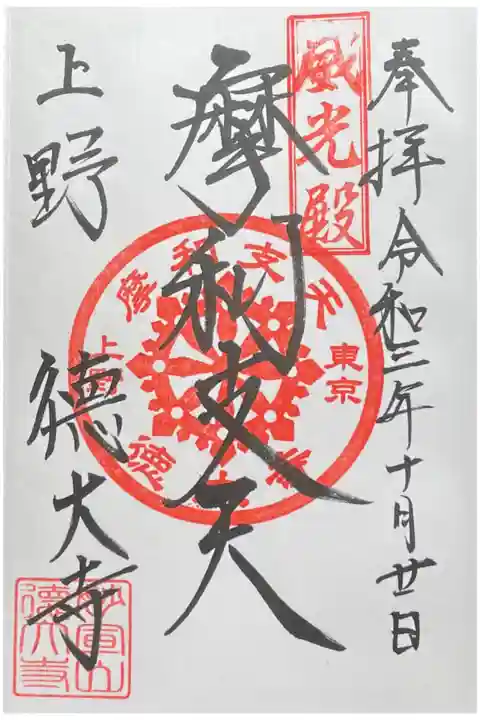 奉拝 令和三年十月廿日
威光殿
摩利支天
摩利支天
東京
上野
徳大寺
上野 徳大寺
妙宣山
徳大寺